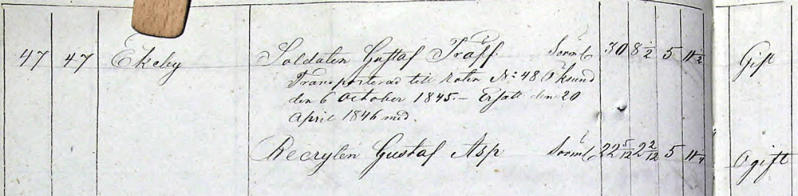 47 47 Ekeby Soldaten Gustaf Träff Sörml. 30 8 1/2 5 11 1/2 Gift
Transporterad till roten N: 48 Öksund
den 6 October 1845.- Ersatt den 20
April 1846 med.
Recryten Gustaf Asp Sörml. 22 5/12 2 2/12 5 Ogift